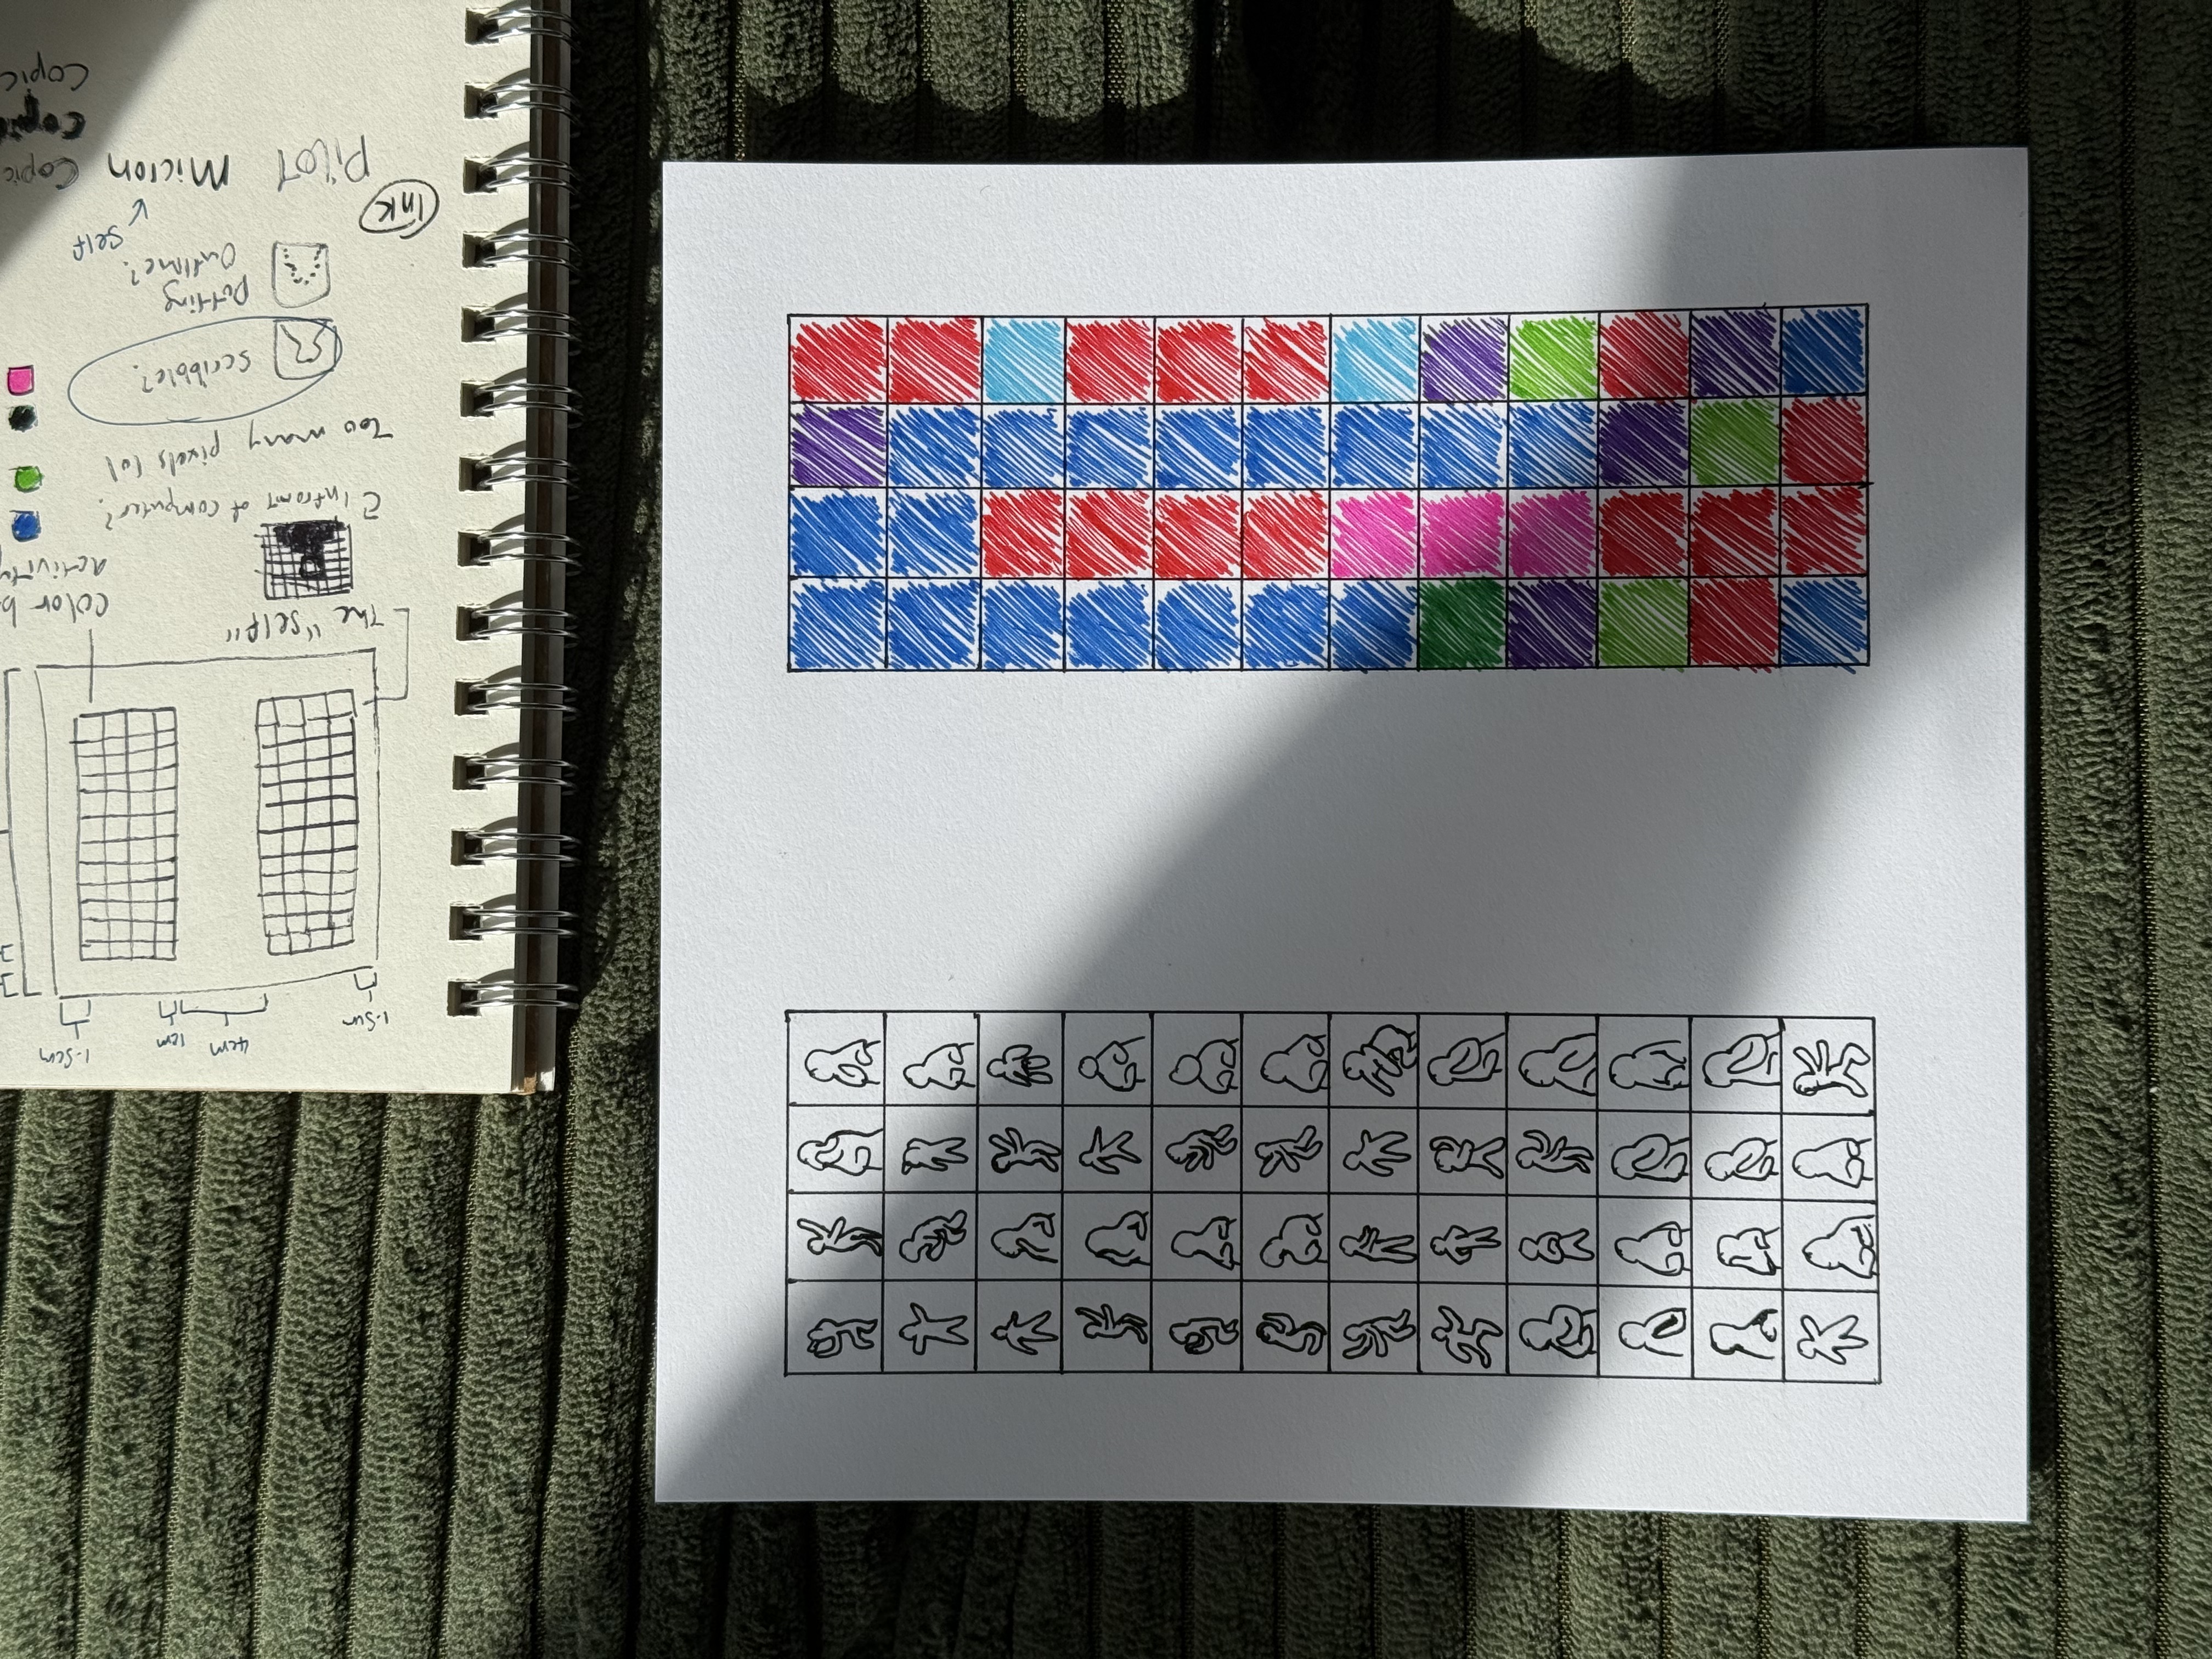 1.5cm
4cm
1cm
1.5cm
The "self"
color b
activity
of computer?
Too many pixels lol
scribble?
Dotting
Outline?
self
Ink
Pilot
Micron
Copic
Copic
Copic